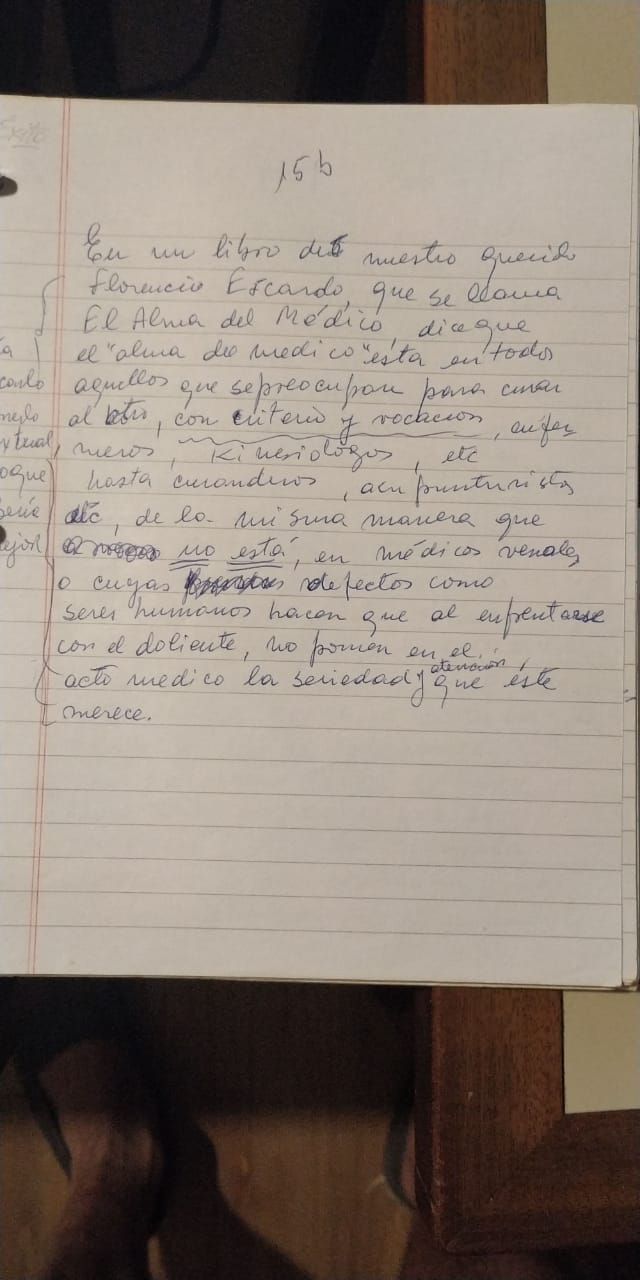 Exito
15 b
En un libro de nuestro querido
Florencio Escardo, que se llama
El Alma del Médico, dice que
el "alma de medico" esta en todos
aquellos que se preocupan para curar
al otro, con criterio y vocacion, enfer
meros, Kinesiologos, etc
hasta curanderos, acupunturistas
etc, de la misma manera que
no está, en médicos venales
o cuyas defectos como
seres humanos hacen que al enfrentarse
con el doliente, no ponen en el
acto medico la seriedad y atencion, que este
merece.